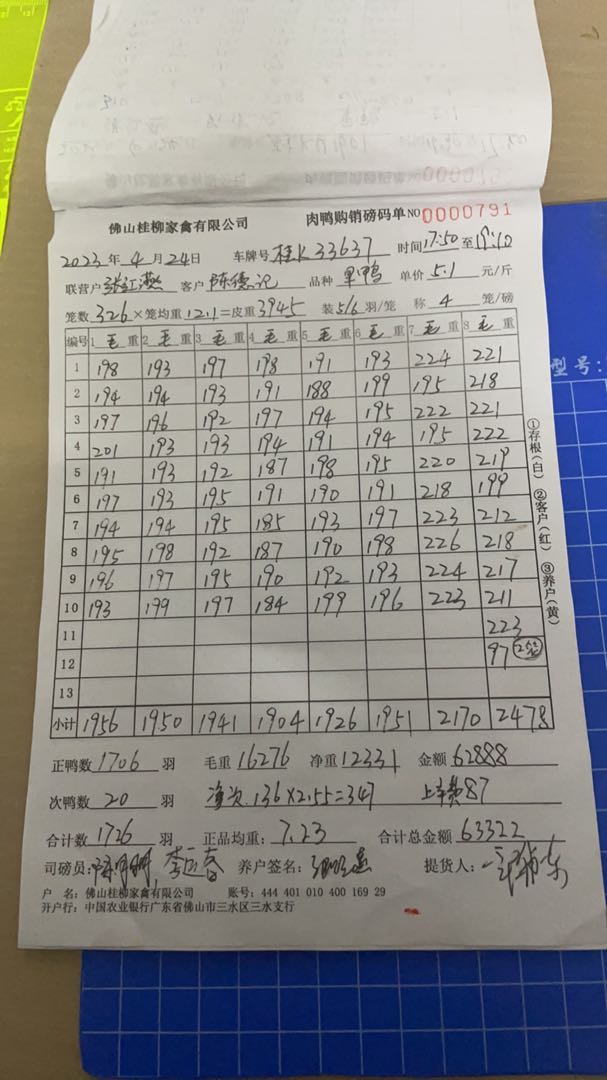 佛山桂柳家禽有限公司 肉鸭购销磅码单 NO 0000791
2023年4月24日 车牌号 桂K33637 时间17:50至19:10
联营户 张红燕 客户 陈德记 品种 单鸭 单价 5.1 元/斤
笼数 326 ×笼均重 12.1 =皮重 3945 装 5/6 羽/笼 称 4 笼/磅
编号 1 毛 重 2 毛 重 3 毛 重 4 毛 重 5 毛 重 6 毛 重 7 毛 重 8 毛 重
1 198 193 197 198 191 193 224 221
2 194 194 193 191 188 199 195 218
3 197 196 192 197 194 195 222 221
4 201 193 193 194 191 194 195 222
5 191 193 192 187 198 195 220 219
6 197 193 195 191 190 191 218 199
7 194 194 195 185 193 197 223 212
8 195 198 192 187 190 198 226 218
9 196 197 195 190 192 193 224 217
10 193 199 197 184 199 196 223 211
11 223
12 97 2笼
13
小计 1956 1950 1941 1904 1926 1951 2170 2478
①存根(白) ②客户(红) ③养户(黄)
正鸭数 1706 羽 毛重 16276 净重 12331 金额 62888
次鸭数 20 羽 净次.136×2.55=347 上车费87
合计数 1726 羽 正品均重: 7.23 合计总金额 63322
司磅员: 养户签名: 提货人:
户 名: 佛山桂柳家禽有限公司 账号: 444 401 010 400 169 29
开户行: 中国农业银行广东省佛山市三水区三水支行
型号: